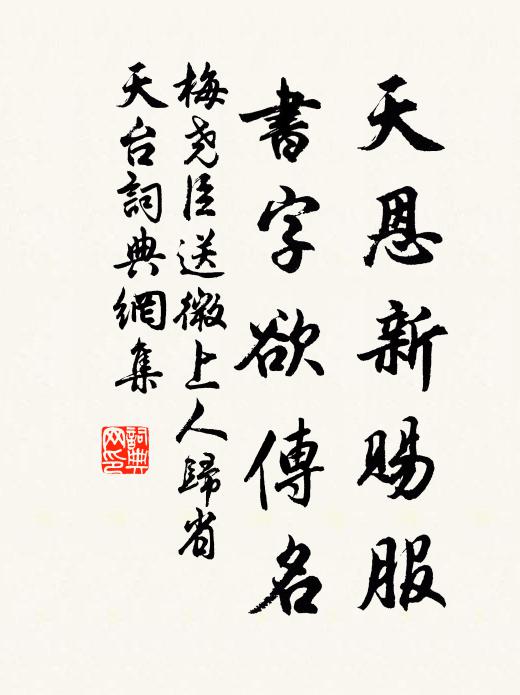 天恩新賜服
書字欲傳名
梅堯臣送微上人歸省
天台詞典網集
詞典
网印